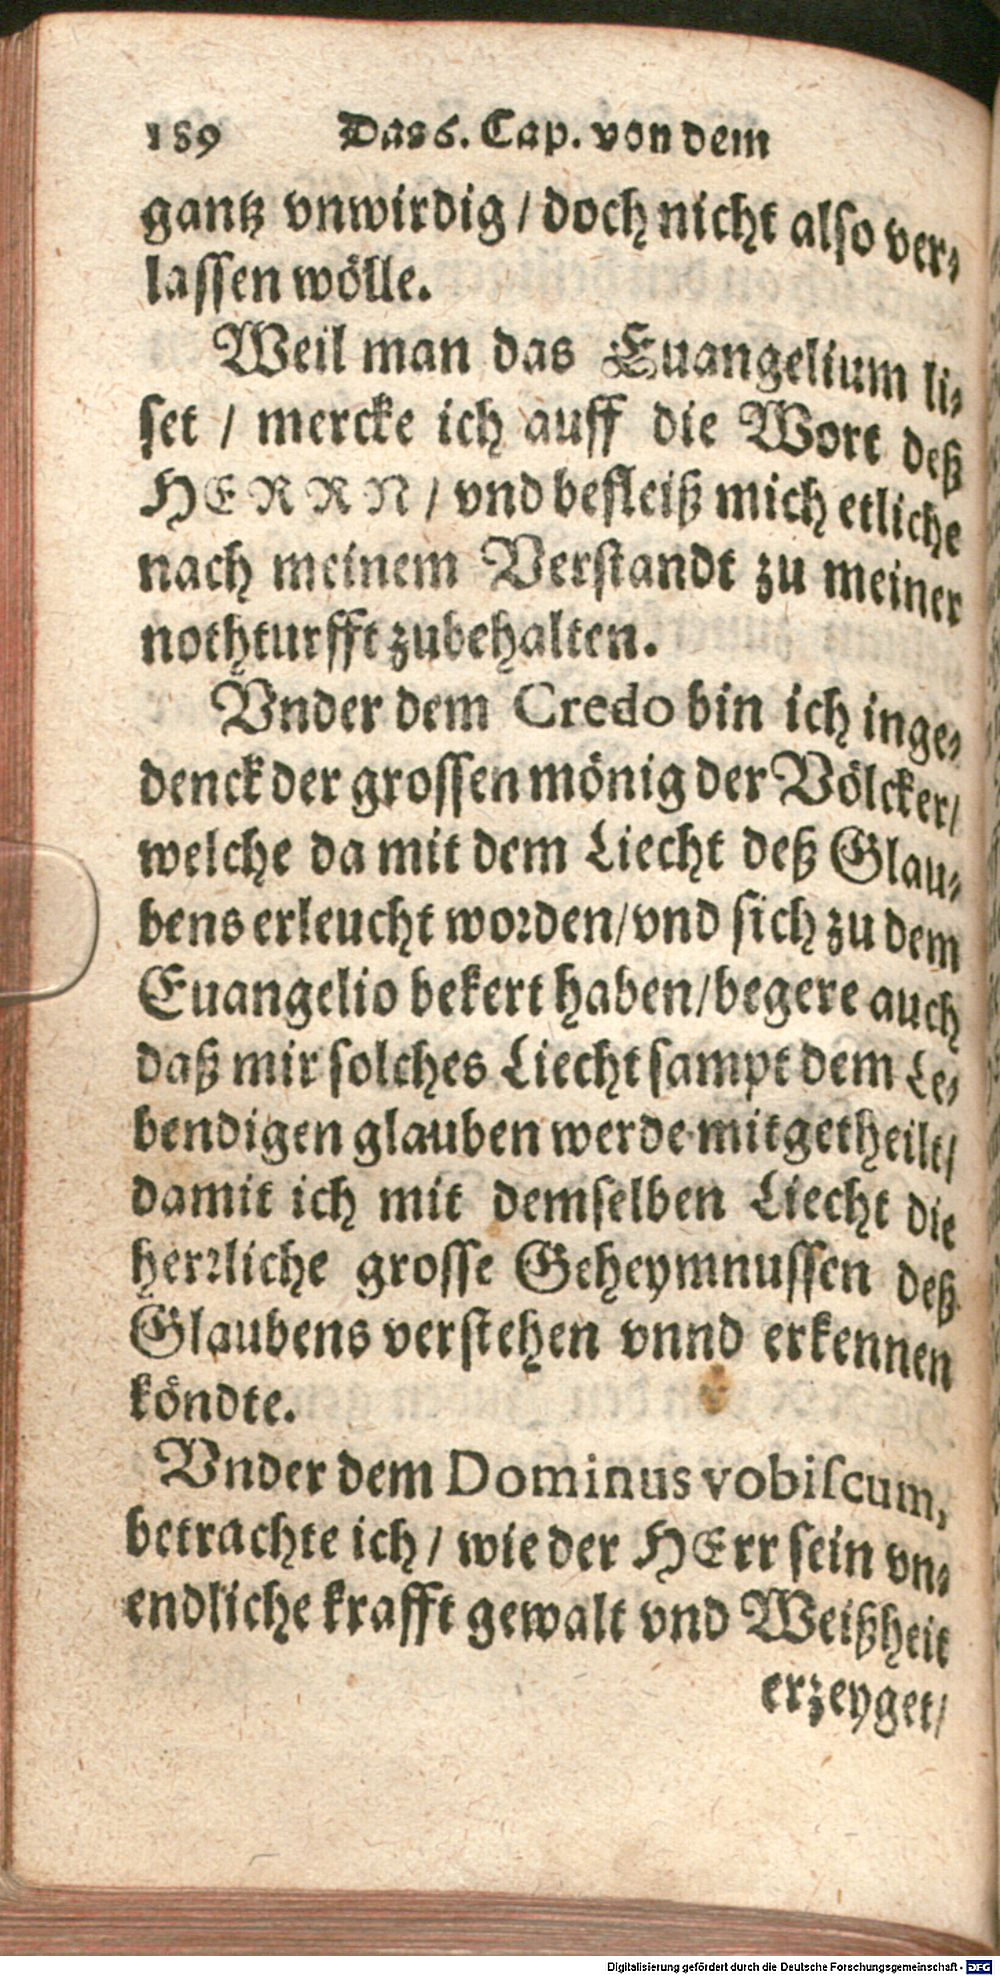 189 Das 6. Cap. von dem
gantz vnwirdig / doch nicht also ver-
lassen wölle.
Weil man das Euangelium li-
set / mercke ich auff die Wort deß
HERRN / vnd befleiß mich etliche
nach meinem Verstandt zu meiner
nothturfft zubehalten.
Vnder dem Credo bin ich inge-
denck der grossen mönig der Völcker /
welche da mit dem Liecht deß Glau-
bens erleucht worden / vnd sich zu dem
Euangelio bekert haben / begere auch
daß mir solches Liecht sampt dem Le-
bendigen glauben werde mitgetheilt /
damit ich mit demselben Liecht die
herrliche grosse Geheymnussen deß
Glaubens verstehen vnnd erkennen
köndte.
Vnder dem Dominus vobiscum,
betrachte ich / wie der HErr sein vn-
endliche krafft gewalt vnd Weißheit
erzeyget /
Digitalisierung gefördert durch die Deutsche Forschungsgemeinschaft - DFG